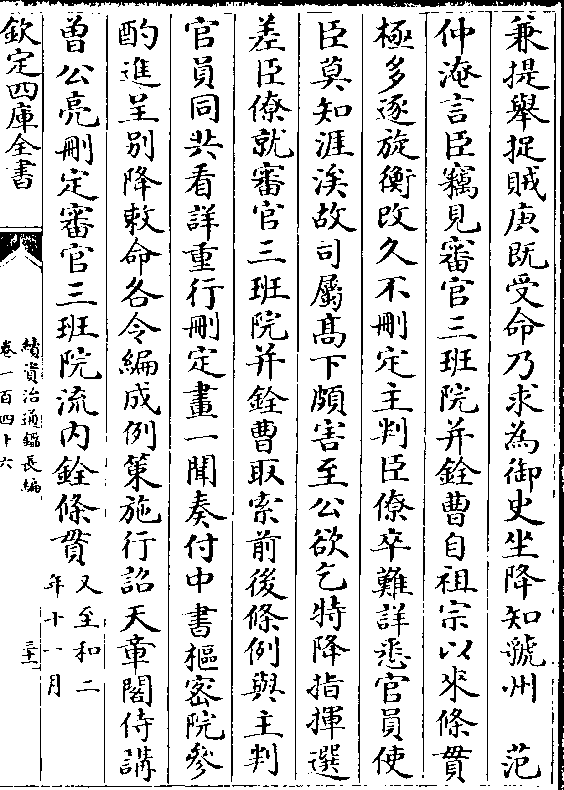 兼提舉捉賊庚既受命乃求為御史坐降知虢州　范
仲淹言臣竊見審官三班院并銓曹自祖宗以來條貫
極多逐旋衡改久不刪定主判臣僚卒難詳悉官員使
臣莫知涯涘故司屬髙下頗害至公欲乞特降指揮選
差臣僚就審官三班院并銓曹取索前後條例與主判
官員同共看詳重行刪定畫一聞奏付中書樞密院參
酌進呈别降敕命各令編成例䇿施行詔天章閣侍講
曽公亮刪定審官三班院流内銓條貫
又至和二
年十一月
欽定四庫全書
續資治通鑑長編
卷一百四十六
三十一